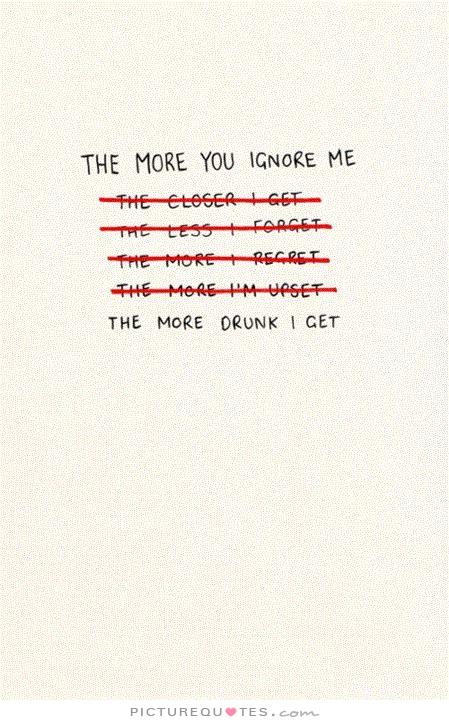 THE MORE YOU IGNORE ME
THE CLOSER I GET
THE LESS I FORGET
THE MORE I REGRET
THE MORE I'M UPSET
THE MORE DRUNK I GET
PICTUREQUOTES.com